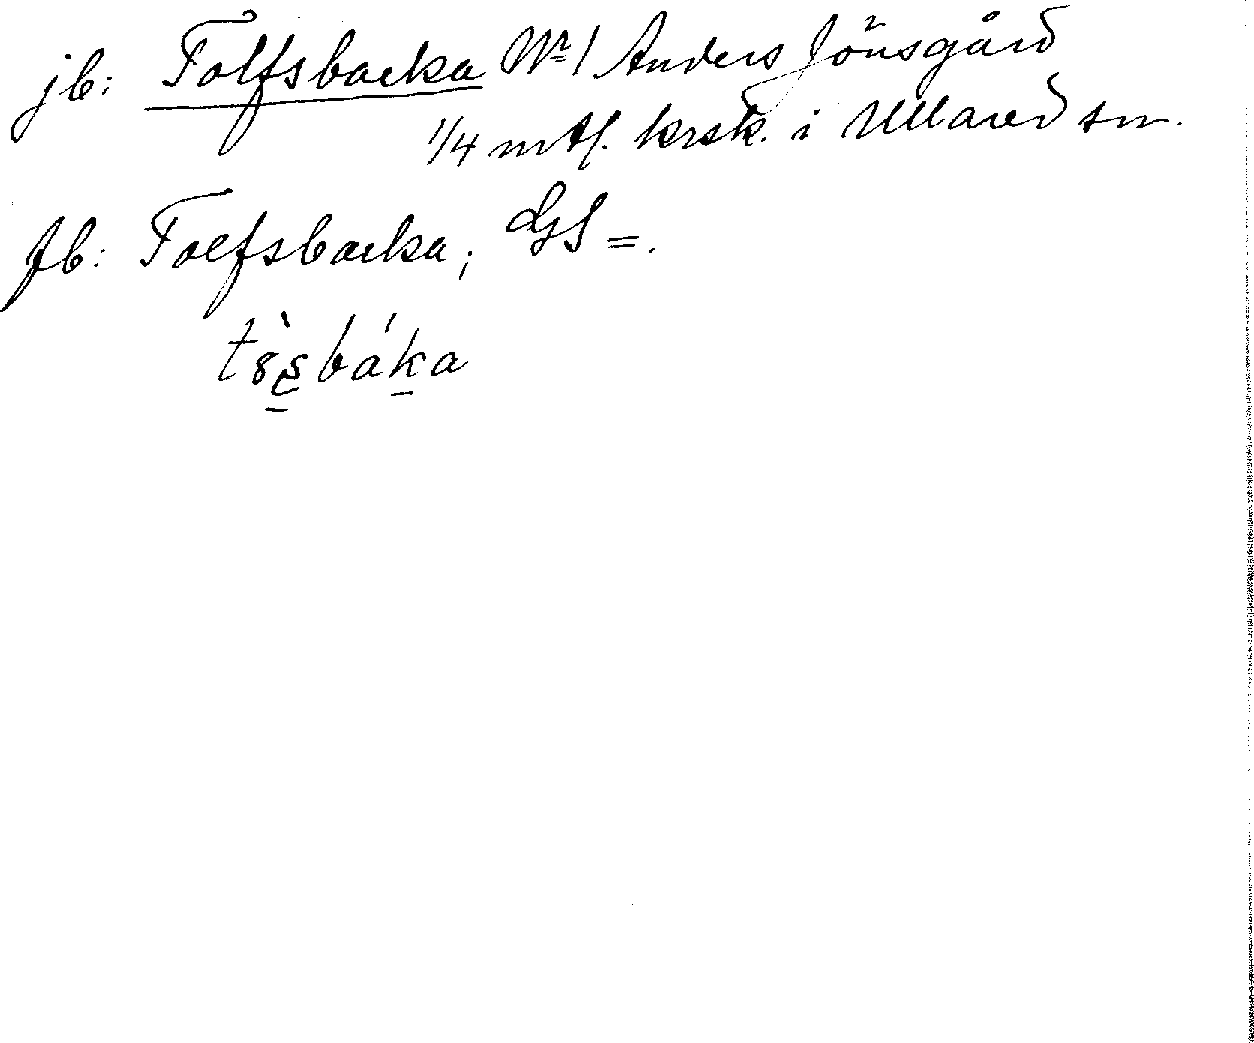 jb: Tolfsbacka Nr 1 Anders Jönsgård
1/4 mtl. krsk. i Ullared sn.
fb: Tolfsbacka; GS =.